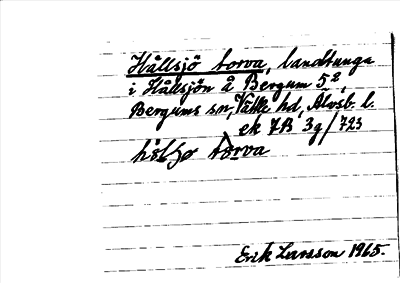 Hållsjö torva, landtunga
i Hållsjön å Bergum 5²,
Bergums sn, Vättle hd, Älvsb. l.
ek 7B 3g/723
hålʃø tɔrva
Erik Larsson 1965.